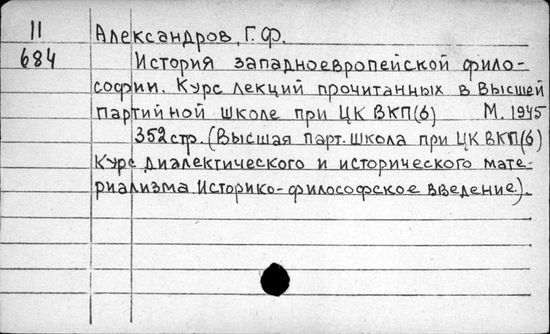 11 Александров, Г.Ф.
684 История западноевропейской фило-
софии. Курс лекций прочитанных в Высшей
партийной школе при ЦК ВКП(б) М. 1945
352 стр. (Высшая парт. школа при ЦК ВКП(б)
Курс диалектического и исторического мате-
риализма. Историко-философское введение).